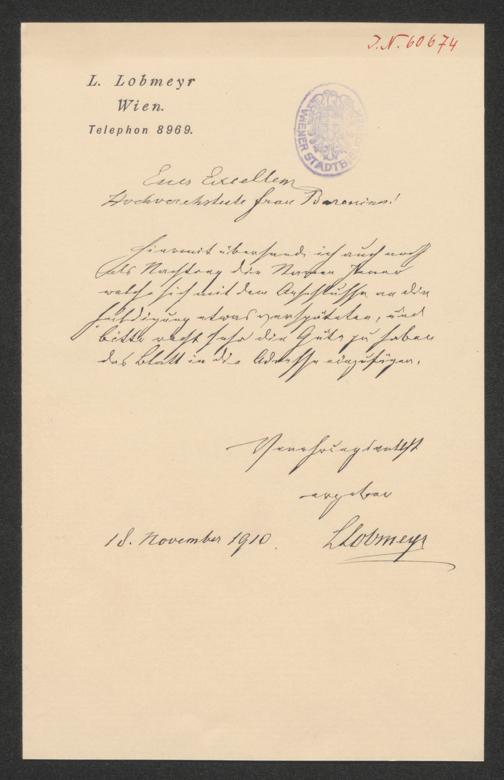 J.N. 60674
L. Lobmeyr
Wien.
Telephon 8969.
WIENER STADTB
Euer Excellenz
Hochverehrteste Frau Baronin!
Hiermit übersende ich auch noch
als Nachtrag die Namen Jener
welche sich mit dem Anschlusse an die
Huldigung etwas verspäteten, und
bitte recht sehr die Güte zu haben
das Blatt in die Adresse einzufügen.
Verehrungsvollst
ergeben
18. November 1910.
LLobmeyr